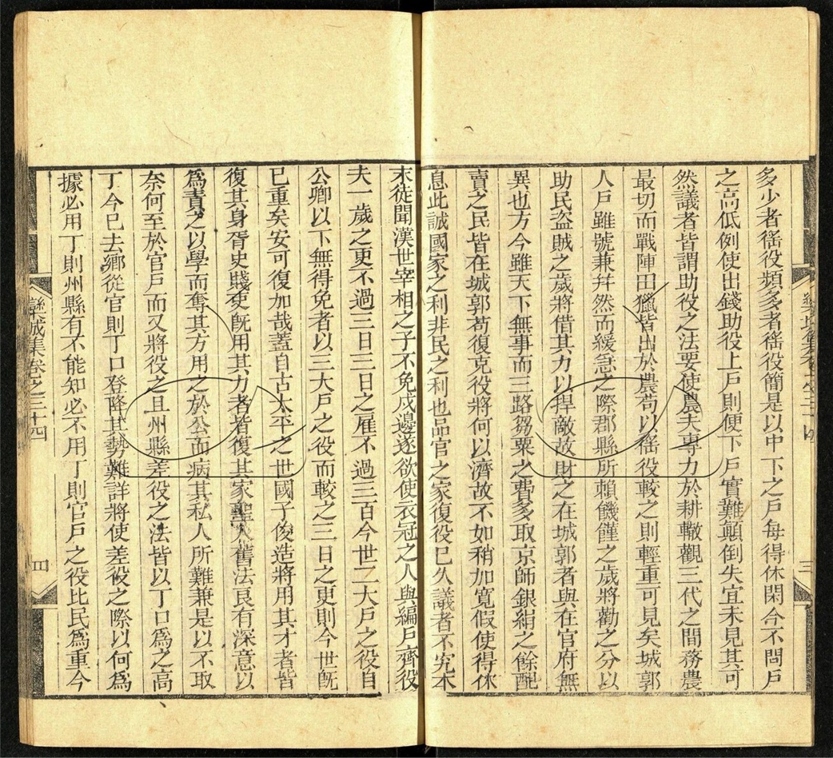 多少者徭役頻多者徭役簡是以中下之戶每得休閑今不問戶
之高低例使出錢助役上戶則便下戶實難顛倒失宜未見其可
然議者皆謂助役之法要使農夫專力於耕轍觀三代之間務農
最切而戰陣田獵皆出於農苟以徭役較之則輕重可見矣城郭
人戶雖號兼幷然而緩急之際郡縣所賴饑饉之歲將勸之分以
助民盜賊之歲將借其力以捍敵故財之在城郭者與在官府無
異也方今雖天下無事而三路芻粟之費多取京師銀絹之餘配
賣之民皆在城郭苟復充役將何以濟故不如稍加寬假使得休
息此誠國家之利非民之利也品官之家復役已久議者不究本
三
末徒聞漢世宰相之子不免戍邊遂欲使衣冠之人與編戶齊役
夫一歲之更不過三日三日之雇不過三百今世三大戶之役自
公卿以下無得免者以三大戶之役而較之三日之更則今世旣
已重矣安可復加哉蓋自古太平之世國子俊造將用其才者皆
復其身胥史賤吏旣用其力者皆復其家聖人舊法良有深意以
爲責之以學而奪其方用之於公而病其私人所難兼是以不取
奈何至於官戶而又將役之且州縣差役之法皆以丁口爲之高
丁今已去鄉從官則丁口登降其勢難詳將使差役之際以何爲
據必用丁則州縣有不能知必不用丁則官戶之役比民爲重今
欒城集卷之三十四
四